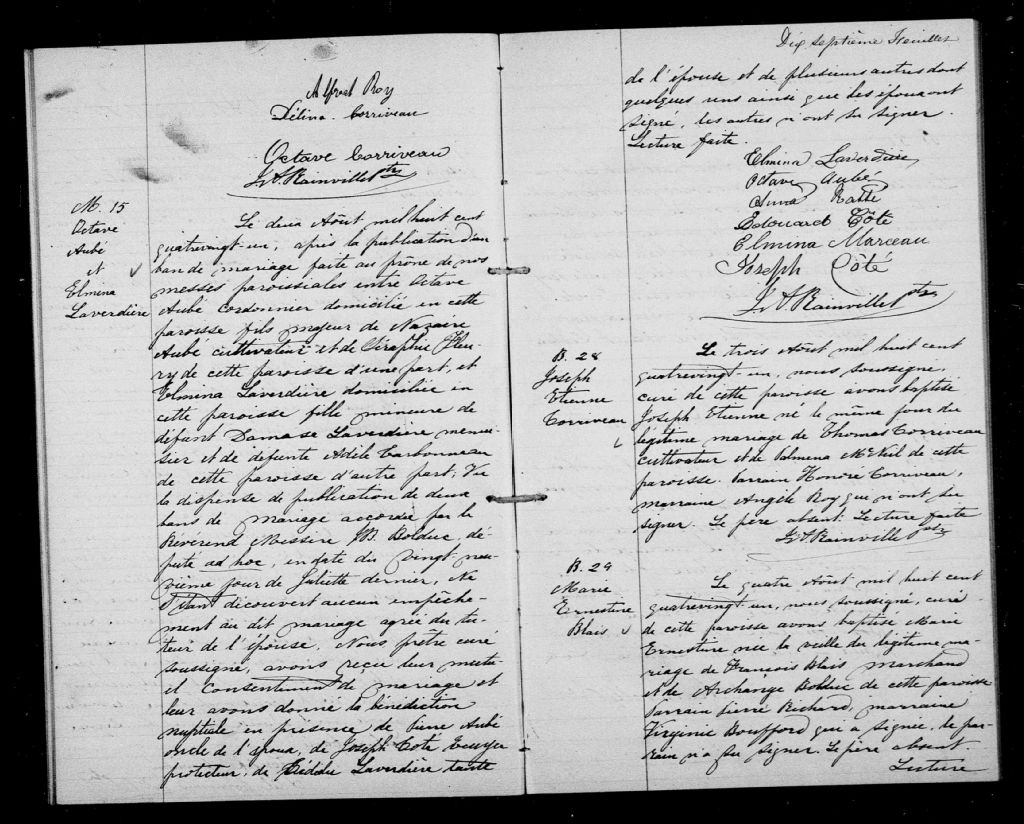 Alfred Roy
Délina Corriveau
Octave Corriveau
J. A. Rainville Ptre
M. 15
Octave
Aubé
et
Elmina
Laverdière
Le deux Août mil huit cent
quatrevingt-un, après la publication d'un
ban de mariage faite au prône de nos
messes paroissiales entre Octave
Aubé cordonnier domicilié en cette
paroisse fils majeur de Nazaire
Aubé cultivateur et de Séraphie Fleu-
ry de cette paroisse d'une part, et
Elmina Laverdière domiciliée en
cette paroisse fille mineure de
défunt Damase Laverdière menui-
sier et de défunte Adèle Carbonneau
de cette paroisse d'autre part; Vu
la dispense de publication de deux
bans de mariage accordée par le
Révérend Messire Bolduc, dé-
puté ad hoc, en date du vingt-neu-
vième jour de Juillette dernier, Ne
s'étant découvert aucun empêche-
ment au dit mariage agréé du tu-
teur de l'épouse, Nous prêtre curé
soussigné, avons reçu leur mutu-
el consentement de mariage et
leur avons donné la bénédiction
nuptiale en présence de Pierre Aubé
oncle de l'époux, de Joseph Coté
protecteur, de Laverdière tante
Dix septième Feuillet
de l'épouse et de plusieurs autres dont
quelques uns ainsi que les époux ont
signé, les autres n'ont su signer.
Lecture faite.
Elmina Laverdière
Octave Aubé
Anna Ratté
Edouard Côté
Elmina Marceau
Joseph Côté
J. A. Rainville Ptre
B. 28
Joseph
Etienne
Corriveau
Le trois Août mil huit cent
quatrevingt-un, nous soussigné,
curé de cette paroisse avons baptisé
Joseph Etienne né le même jour du
légitime mariage de Thomas Corriveau
cultivateur et de Valmena McNeil de cette
paroisse. Parrain Honoré Corriveau,
marraine Angèle Roy qui n'ont su
signer. Le père absent. Lecture faite
J. A. Rainville Ptre
B. 29
Marie
Ernestine
Blais
Le quatre Août mil huit cent
quatrevingt-un, nous soussigné, curé
de cette paroisse avons baptisé Marie
Ernestine née la veille du légitime ma-
riage de François Blais marchand
et de Archange Bolduc de cette paroisse
Parrain Pierre Richard, marraine
Virginie Boufford qui a signé, le par-
rain n'a su signer. Le père absent.
Lecture